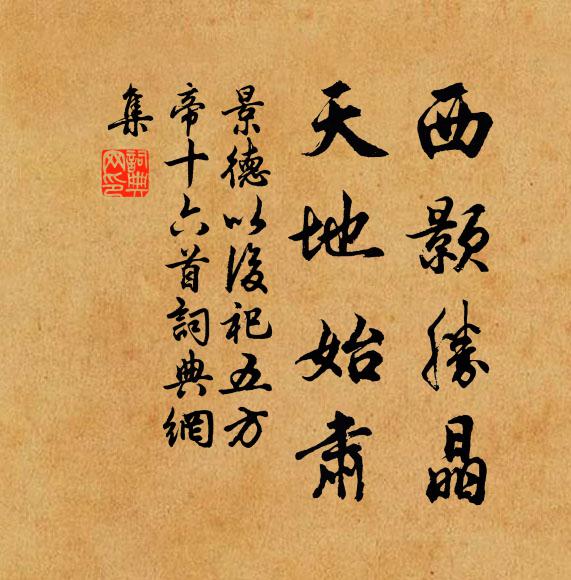 西顥勝晶
天地始肅
景德以後祀五方
帝十六首詞典網
集
詞典網印